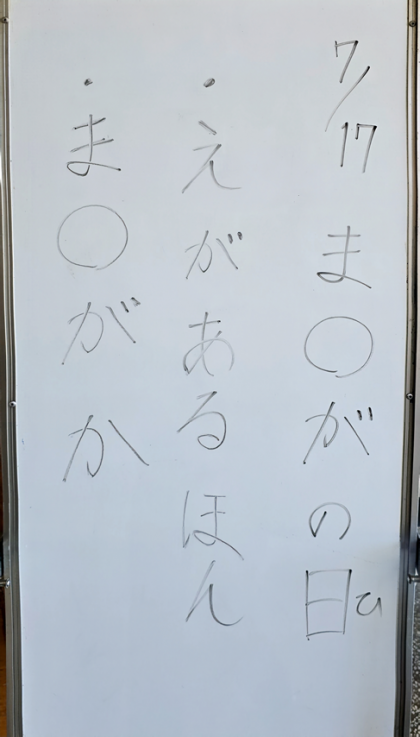 7/17 ま〇がの日ひ
・えがあるほん
・ま〇がか